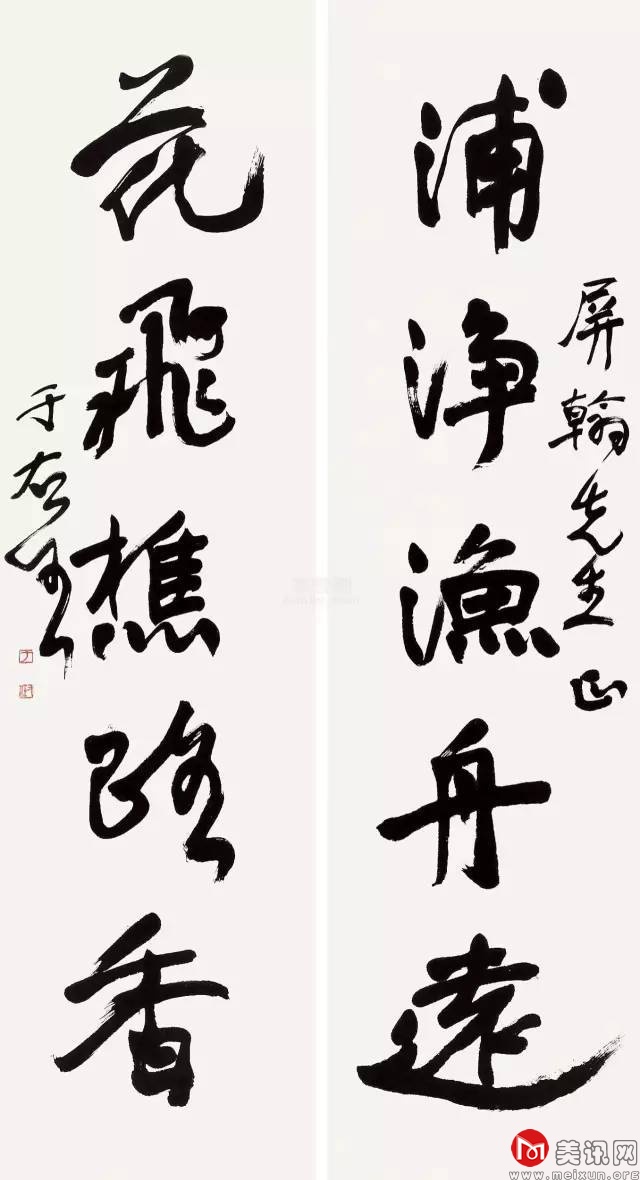 屏翰先生正
浦净漁舟遠
花飛樵路香
于右任
美讯网
www.meixun.org